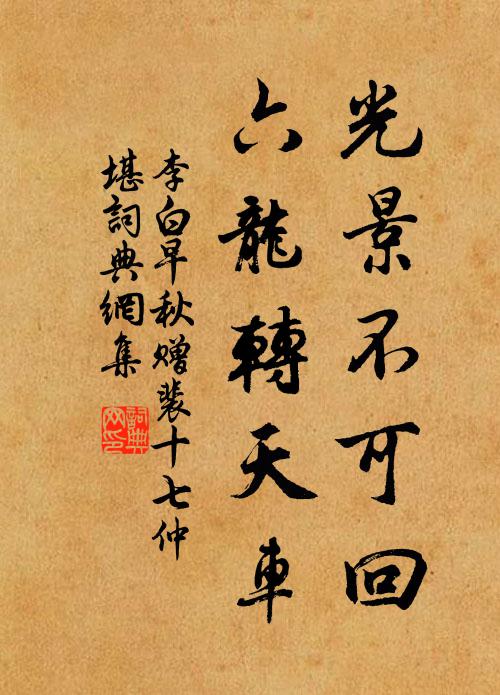 光景不可回
六龍轉天車
李白早秋赠裴十七仲
堪詞典網集
詞典网印